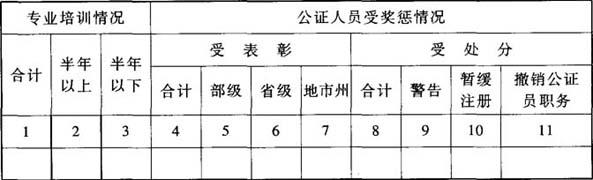 专业培训情况 公证人员受奖惩情况
合计 半年以上 半年以下 受表彰 受处分
合计 部级 省级 地市州 合计 警告 暂缓注册 撤销公证员职务
1 2 3 4 5 6 7 8 9 10 11